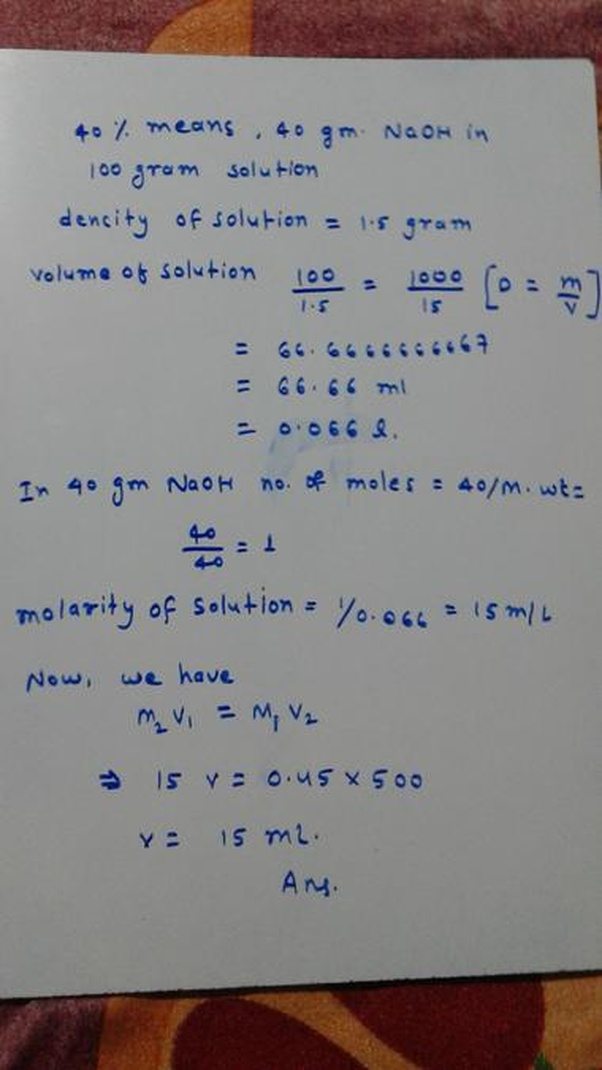 40 % means, 40 gm. NaOH in
100 gram solution
dencity of solution = 1.5 gram
volume of solution 100/1.5 = 1000/15 [D = m/v]
= 66.6666666667
= 66.66 ml
= 0.066 l.
In 40 gm NaOH no. of moles = 40/M. wt =
40/40 = 1
molarity of solution = 1/0.066 = 15 m/L
Now, we have
M₂ V₁ = M₁ V₂
⇒ 15 v = 0.45 × 500
v = 15 mL.
Ans.